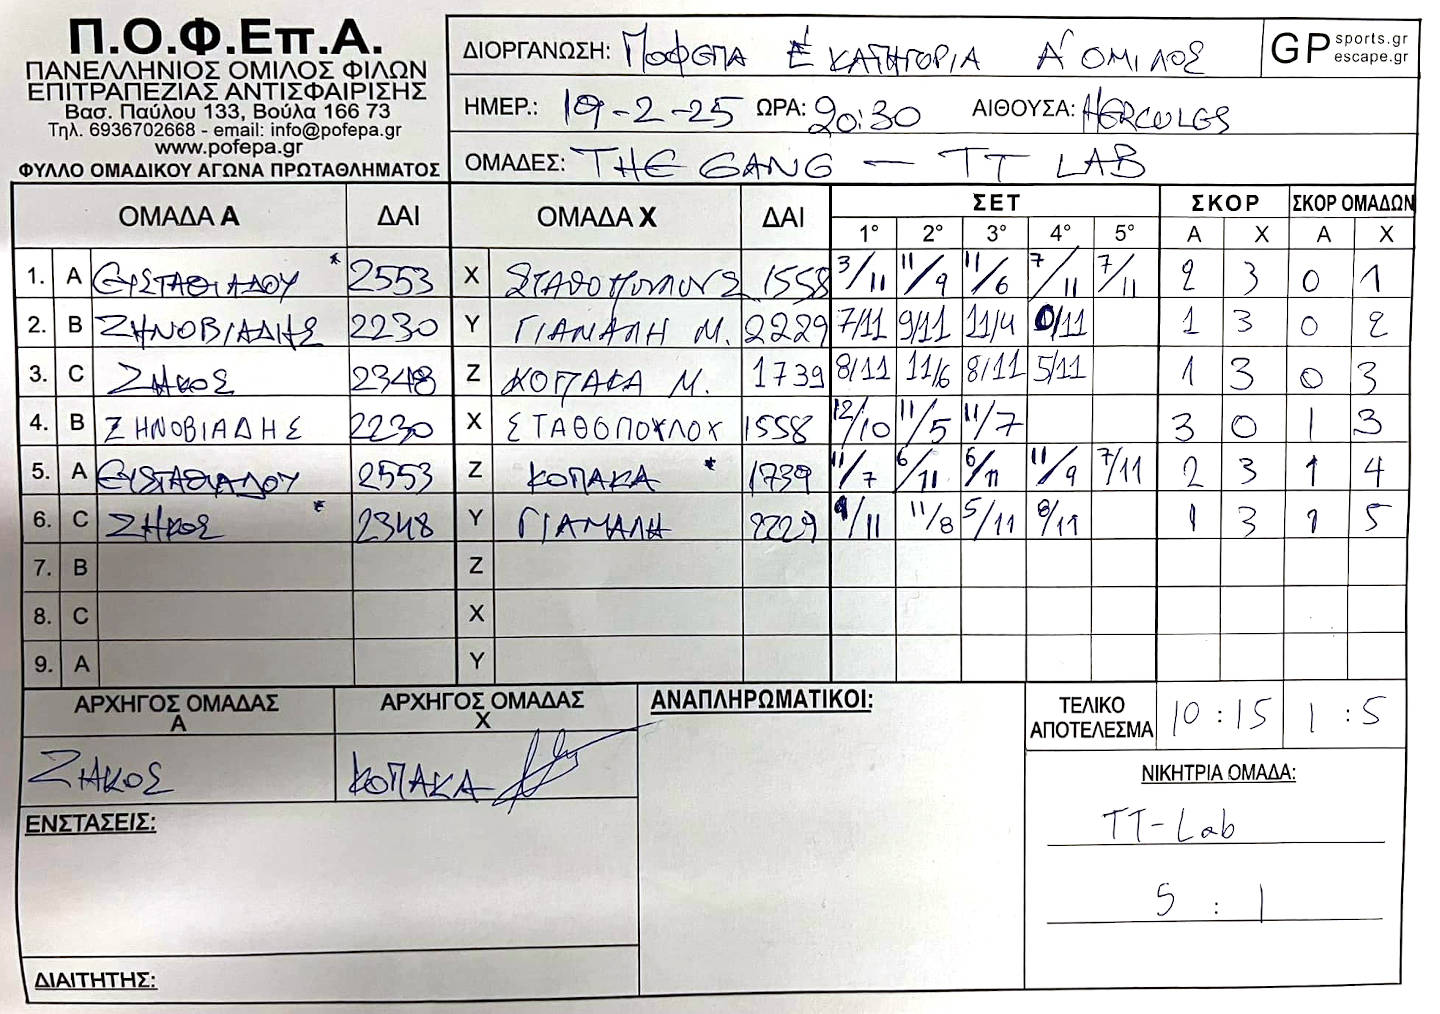 Π.Ο.Φ.Επ.Α.
ΠΑΝΕΛΛΗΝΙΟΣ ΟΜΙΛΟΣ ΦΙΛΩΝ
ΕΠΙΤΡΑΠΕΖΙΑΣ ΑΝΤΙΣΦΑΙΡΙΣΗΣ
Βασ. Παύλου 133, Βούλα 166 73
Τηλ. 6936702668 - email: info@pofepa.gr
www.pofepa.gr
ΦΥΛΛΟ ΟΜΑΔΙΚΟΥ ΑΓΩΝΑ ΠΡΩΤΑΘΛΗΜΑΤΟΣ
ΔΙΟΡΓΑΝΩΣΗ: ΠΟΦΕΠΑ Ε' ΚΑΤΗΓΟΡΙΑ Α' ΟΜΙΛΟΣ
GP sports.gr
escape.gr
ΗΜΕΡ.: 19-2-25 ΩΡΑ: 20:30 ΑΙΘΟΥΣΑ: HERCULES
ΟΜΑΔΕΣ: THE GANG - TT LAB
ΟΜΑΔΑ Α ΔΑΙ ΟΜΑΔΑ Χ ΔΑΙ ΣΕΤ ΣΚΟΡ ΣΚΟΡ ΟΜΑΔΩΝ
1° 2° 3° 4° 5° Α Χ Α Χ
1. A ΕΥΣΤΑΘΙΑΔΟΥ * 2553 X ΣΤΑΘΟΠΟΥΛΟΣ 1558 3/11 11/9 11/6 7/11 7/11 2 3 0 1
2. B ΖΗΝΟΒΙΑΔΗΣ 2230 Y ΓΙΑΜΑΛΗ Μ. 2229 7/11 9/11 11/4 0/11 1 3 0 2
3. C ΖΗΚΟΣ 2348 Z ΚΟΠΑΚΑ Μ. 1739 8/11 11/6 8/11 5/11 1 3 0 3
4. B ΖΗΝΟΒΙΑΔΗΣ 2230 X ΣΤΑΘΟΠΟΥΛΟΥ 1558 12/10 11/5 11/7 3 0 1 3
5. A ΕΥΣΤΑΘΙΑΔΟΥ 2553 Z ΚΟΠΑΚΑ * 1739 11/7 6/11 6/11 11/9 7/11 2 3 1 4
6. C ΖΗΚΟΣ * 2348 Y ΓΙΑΜΑΛΗ 2229 9/11 11/8 5/11 8/11 1 3 1 5
7. B Z
8. C X
9. A Y
ΑΡΧΗΓΟΣ ΟΜΑΔΑΣ Α ΑΡΧΗΓΟΣ ΟΜΑΔΑΣ Χ ΑΝΑΠΛΗΡΩΜΑΤΙΚΟΙ: ΤΕΛΙΚΟ ΑΠΟΤΕΛΕΣΜΑ 10 : 15 1 : 5
ΖΗΚΟΣ ΚΟΠΑΚΑ
ΝΙΚΗΤΡΙΑ ΟΜΑΔΑ:
TT-Lab
5 : 1
ΕΝΣΤΑΣΕΙΣ:
ΔΙΑΙΤΗΤΗΣ: